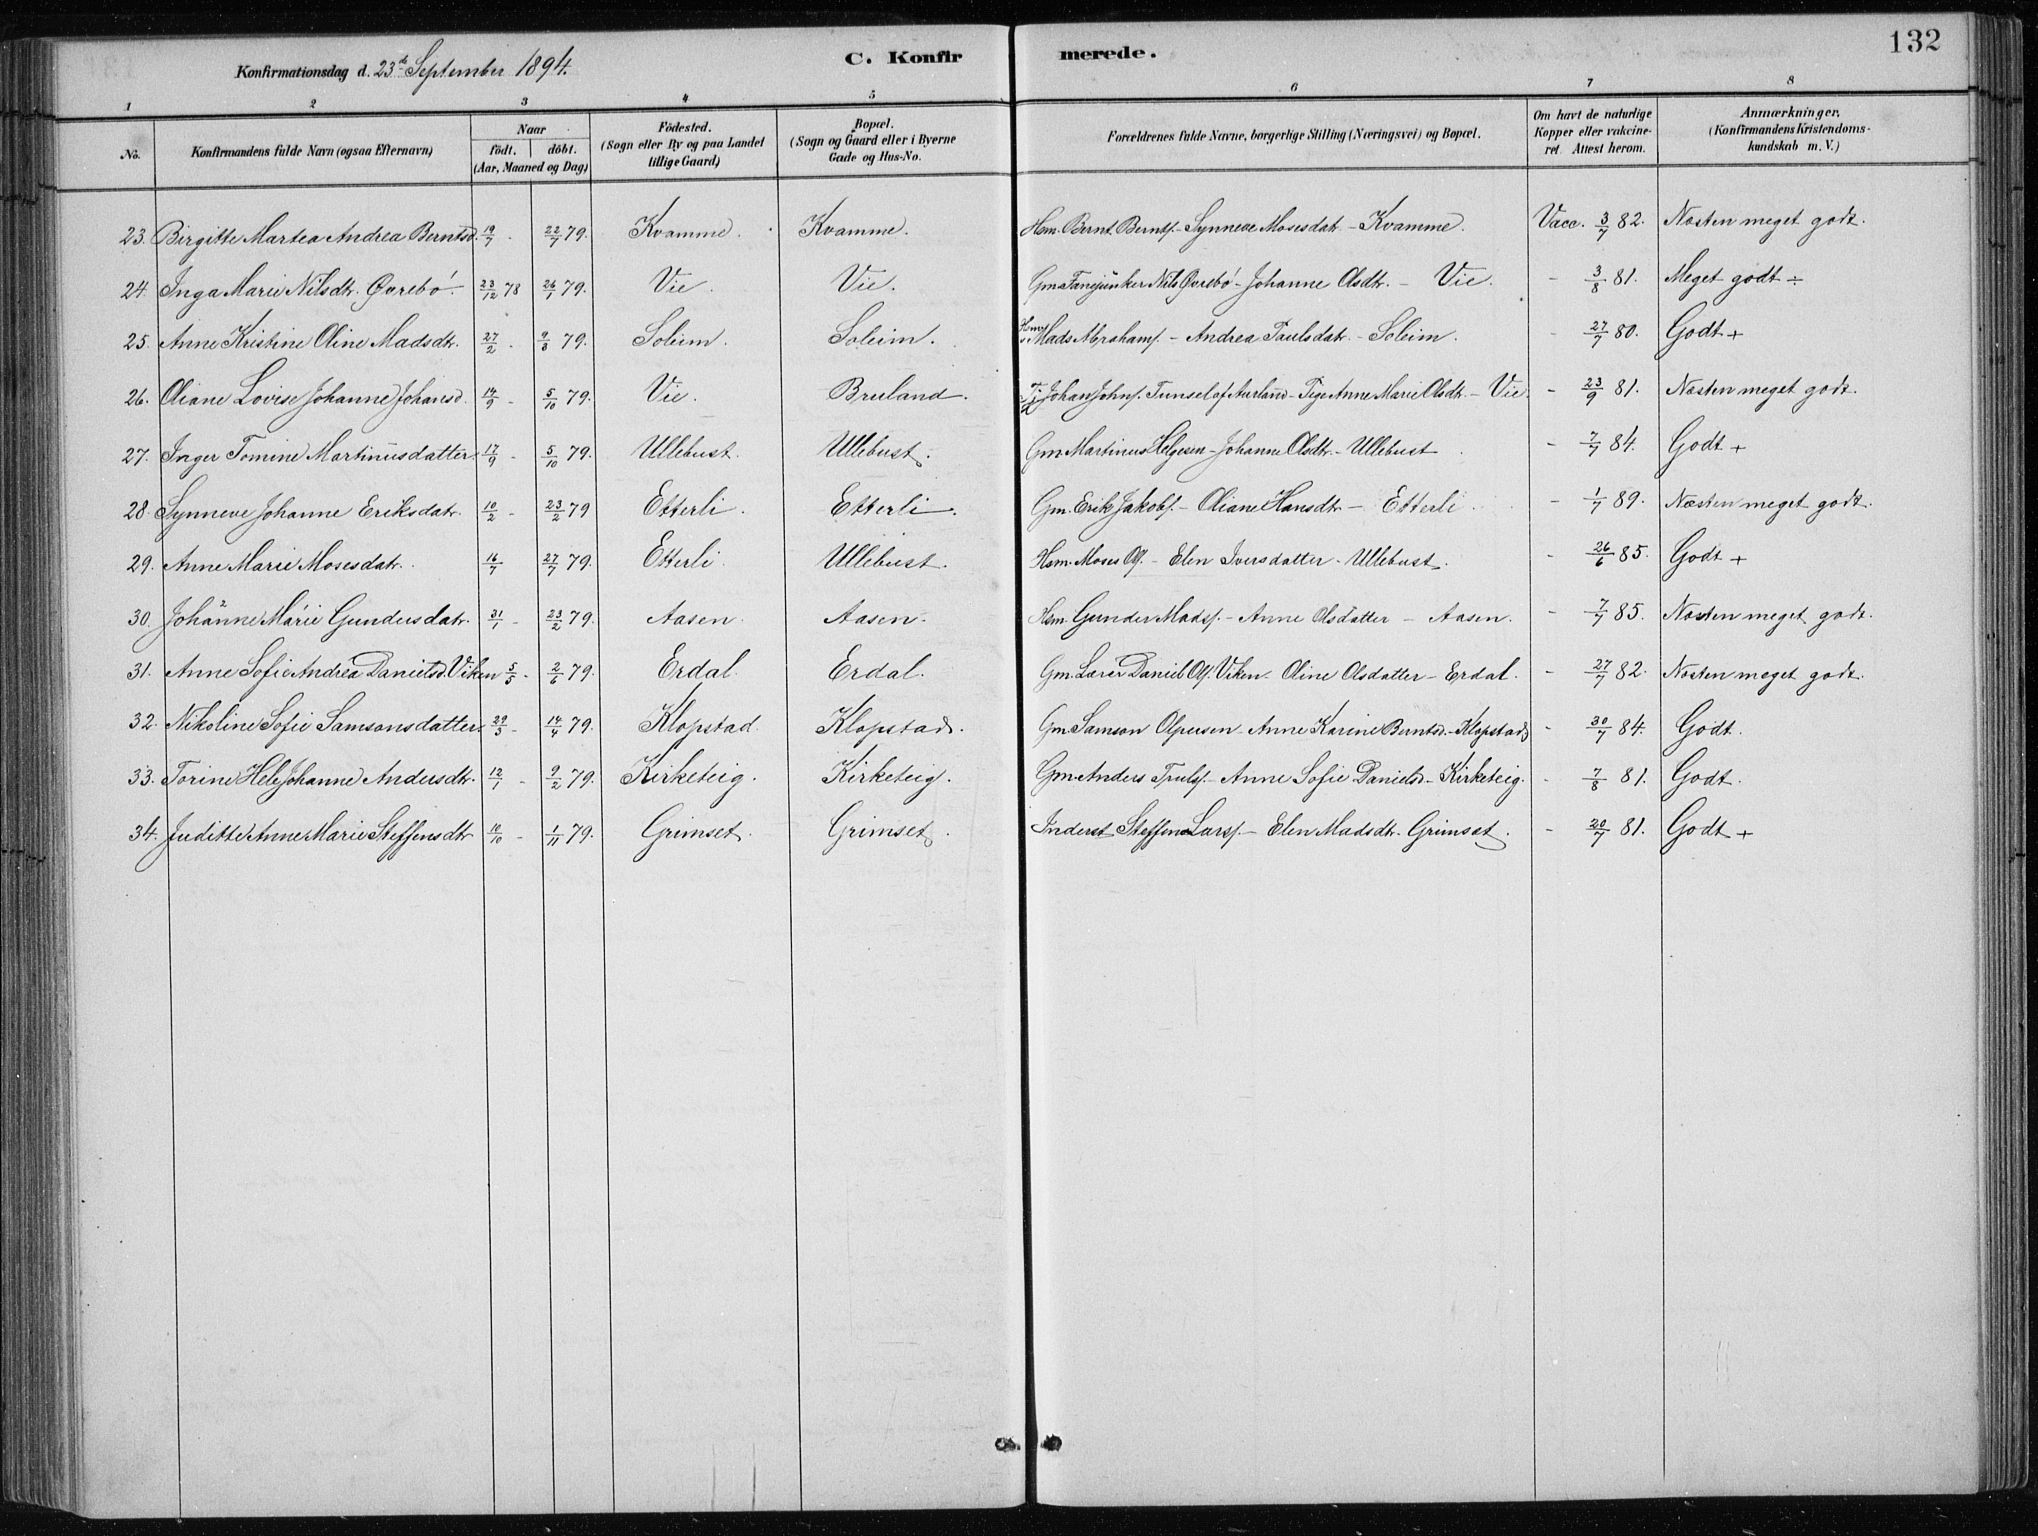 Konfirmationsdag d. 23de September 1894. C. Konfir merede. 132
1 2 3 4 5 6 7 8
No. Konfirmandens fulde Navn (ogsaa Efternavn) Naar födt. döbt. (Aar, Maaned og Dag) Födested. (Sogn eller By og paa Landet tillige Gaard) Bopæl. (Sogn og Gaard eller i Byerne Gade og Hus-No. Forældrenes fulde Navne, borgerlige Stilling (Næringsvei) og Bopæl. Om havt de naturlige Kopper eller vakcineret. Attest herom. Anmærkninger. (Konfirmandens Kristendomskundskab m. V.)
23. Birgitte Martea Andrea Berntsd. 19/7 - 22/7 79. Kvamme. Kvamme. Hsm. Bernt Bernts. - Synneve Mosesdatr - Kvamme. Vacc. 3/7 82. Næsten meget godt.
24. Inga Marie Nilsdtr. Øvrebö. 23/12 78 26/1 79. Vie. Vie. Gm. Fanejunker Nils Øvrebö - Johanne Olsdtr. - Vie. - 3/8 81. Meget godt ÷
25. Anne Kristine Oline Madsdtr. 27/2 - 9/3 79. Soleim. Soleim. Hsm. Mads Abrahams. - Andrea Paulsdatr. - Soleim. - 27/7 80. Godt +
26. Oliane Lovise Johanne Johansd. 14/9 - 5/10 79. Vie. Bruland. Johan Johns. Tunsel af Aurland - Pige Anne Marie Olsdtr. - Vie. - 23/9 81. Næsten meget godt.
27. Inger Tomine Martinusdatter 17/9 - 5/10 79. Ullebust. Ullebust. Gm. Martinus Helgesen - Johanne Olsdtr. - Ullebust. - 7/7 84. Godt +
28. Synneve Johanne Eriksdatr. 10/2 - 23/2 79 Etterli. Etterli. Gm. Erik Jakobs. - Oliane Hansdtr - Etterli. - 1/7 89. Næsten meget godt.
29. Anne Marie Mosesdatr. 16/7 27/7 79. Etterli. Ullebust. Hsm. Moses Ols. - Elen Iversdatter - Ullebust. - 26/6 85. Godt +
30. Johanne Marie Gundersdatr. 31/1 - 23/2 79. Aasen. Aasen. Hsm. Gunder Mads. - Anne Olsdatter - Aasen. - 7/7 85. Næsten meget godt.
31. Anne Sofie Andrea Danielsd. Viken 5/5 - 2/6 79. Erdal. Erdal. Gm. Lærer Daniel Ols. Viken - Oline Olsdatter - Erdal. - 27/7 82. Næsten meget godt.
32. Nikoline Sofie Samsonsdatter. 29/3 - 14/4 79. Klopstad. Klopstad. Gm. Samson Olpersen - Anne Karine Berntsd. - Klopstad - 30/7 84. Godt.
33. Torine Hele Johanne Andersdtr. 12/7 - 9/2 79. Kirketeig. Kirketeig. Gm. Anders Truls. - Anne Sofie Danielsd. - Kirketeig. - 7/8 81. Godt.
34. Juditte Anne Marie Steffensdtr 10/10 - 1/11 79. Grimset. Grimset. Inderst Steffen Lars. - Elen Madsdtr. Grimset. - 20/7 81. Godt +